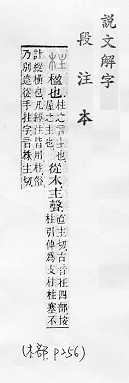 說文解字
段注本
柱 楹也 柱之言主也屋之主也 從木主聲 直主切古音在四部按柱引伸爲支柱柱塞不
計縱橫也凡經注皆用柱俗乃別造從手拄字音株主切
(木部 p256)